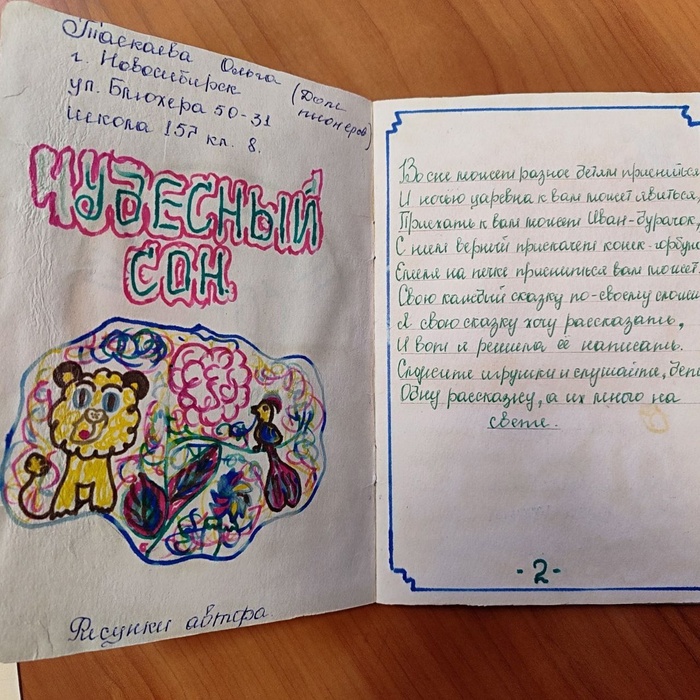 Таскаева Ольга (Дом
г. Новосибирск пионеров)
ул. Блюхера 50-31
школа 157 кл. 8.
ЧУДЕСНЫЙ
СОН.
Рисунки автора.
Во сне может разное детям присниться
И ночью царевна к вам может явиться,
Приехать к вам может Иван-дурачок,
С ним верный прискачет конёк-горбун
Емеля на печке присниться вам может.
Свою каждый сказку по-своему сложи
Я свою сказку хочу рассказать,
И вот я решила её написать.
Сложите игрушки и слушайте, дети
Одну рассказку, а их много на
свете.
-2-